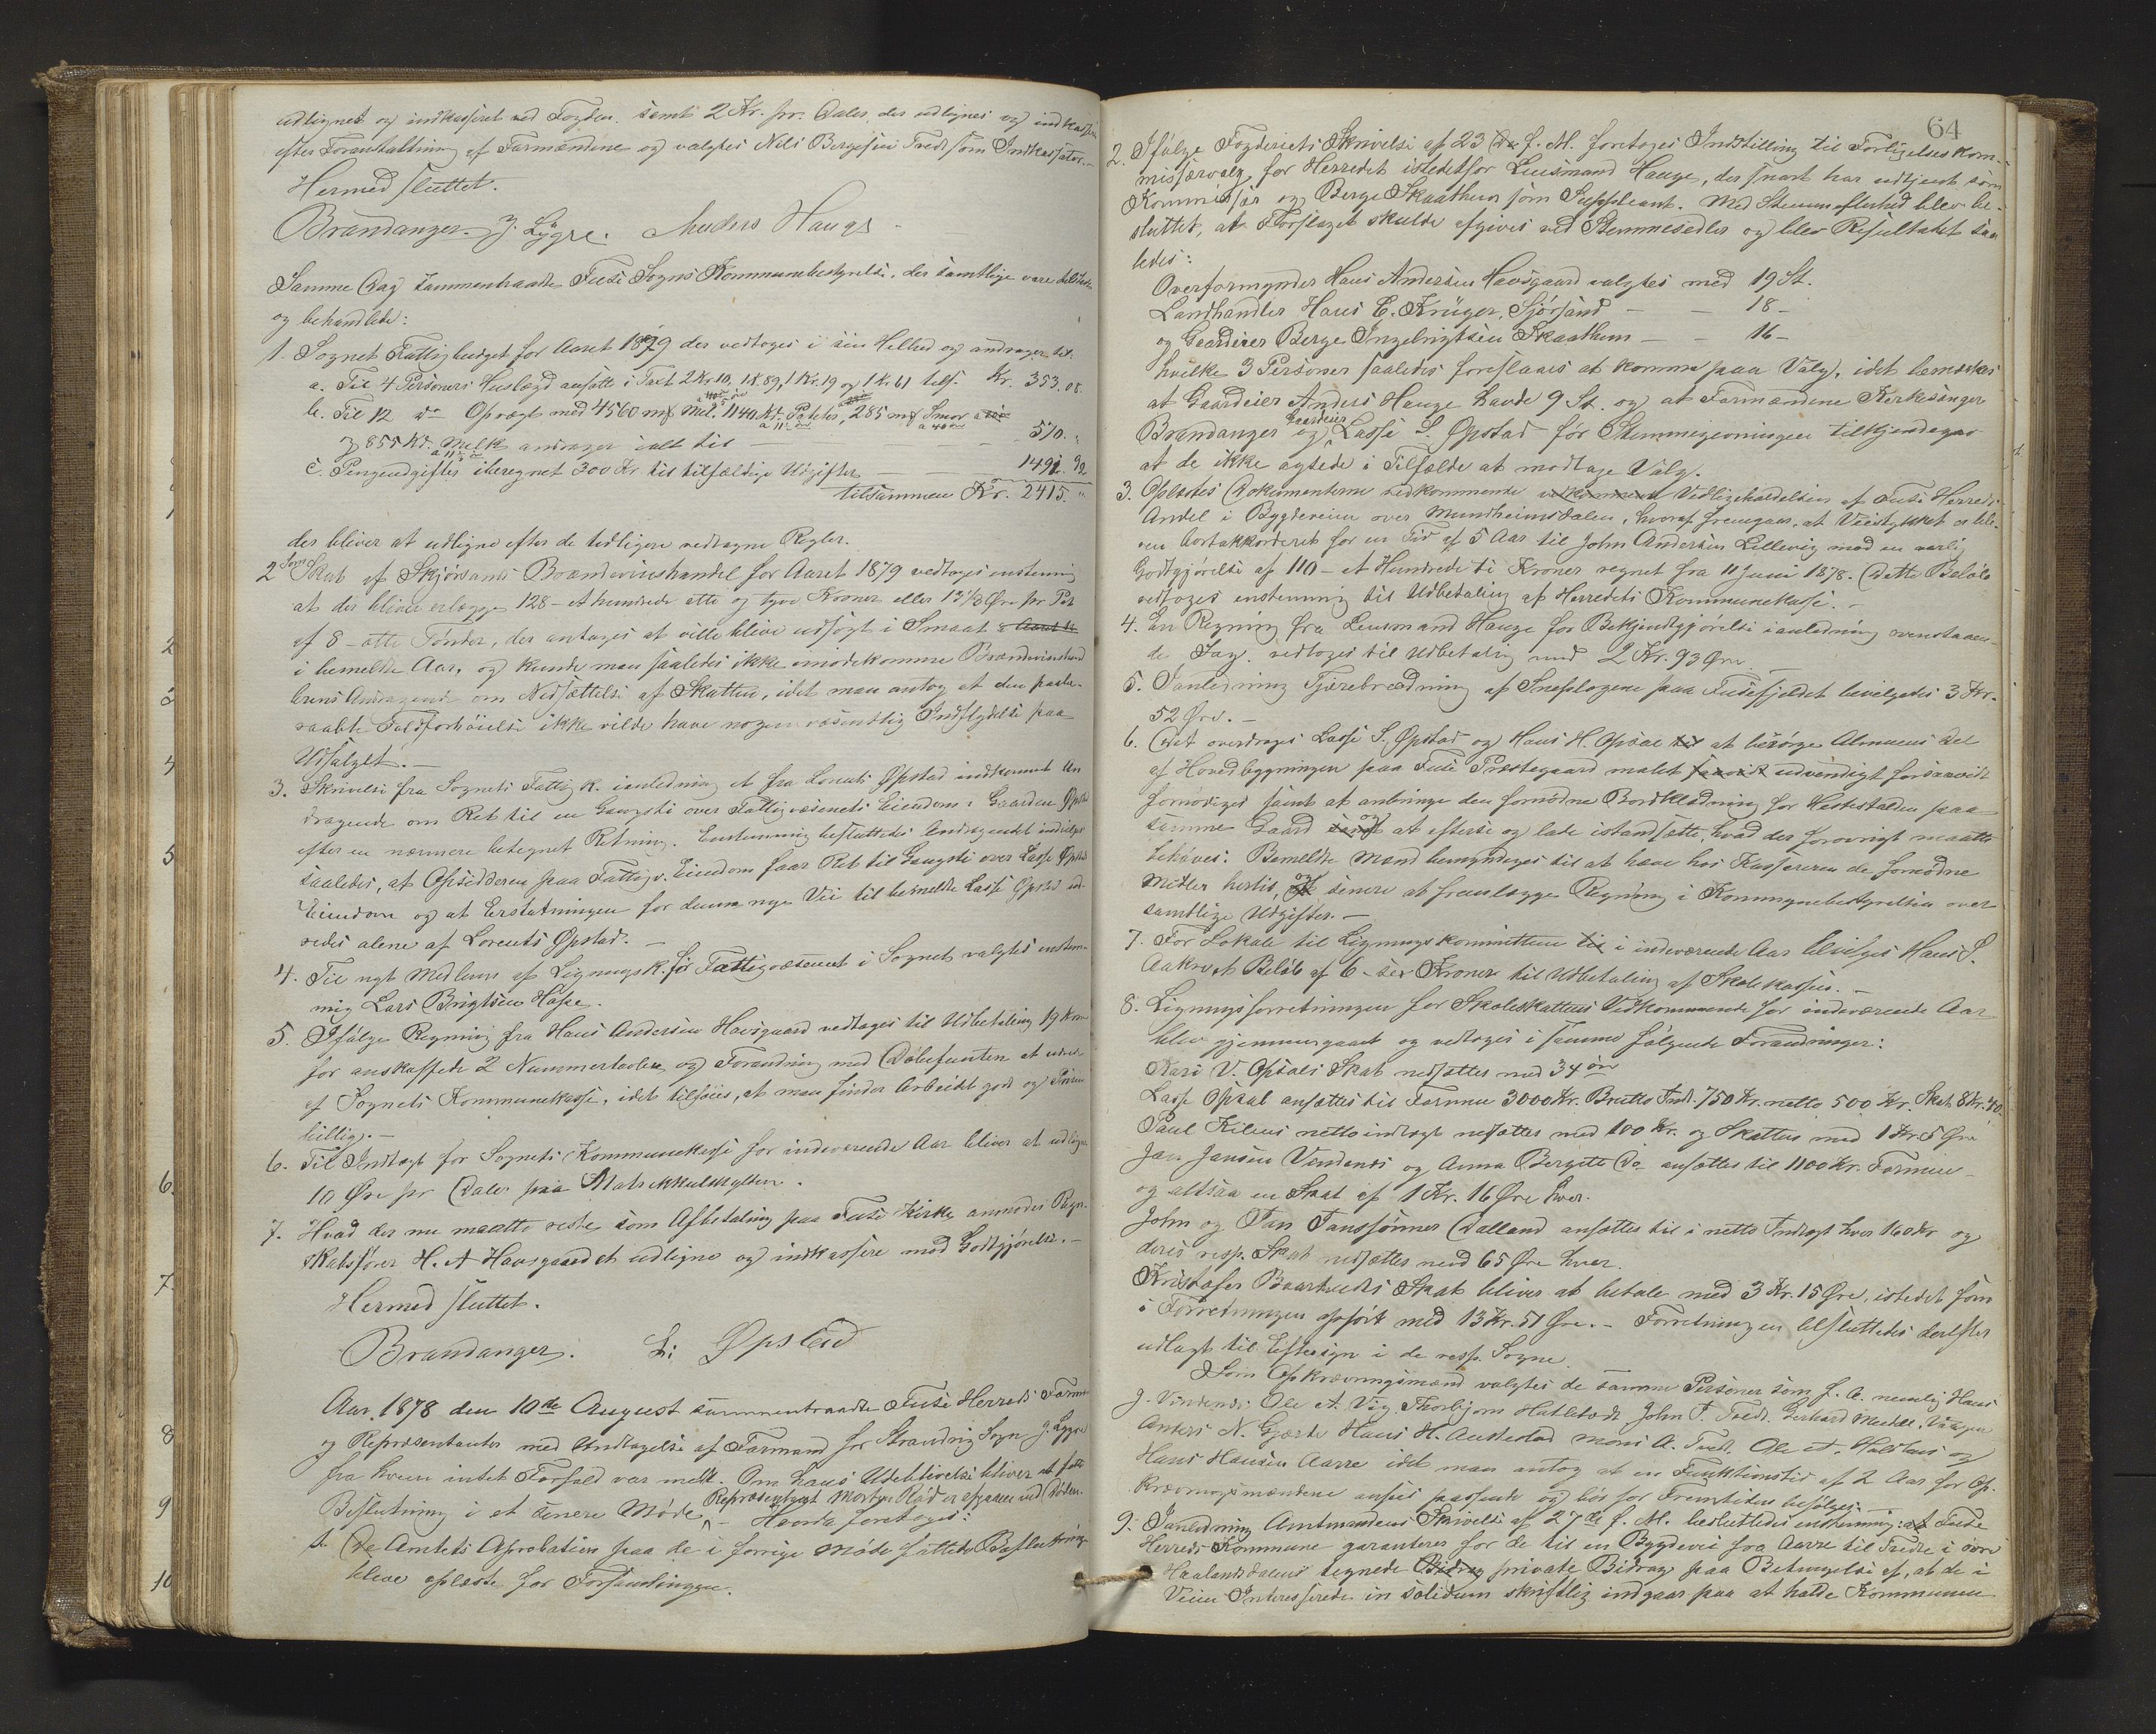 udlignet og indkasseret ved Fogden samt 2 Kr. pr. Daler, der udlignes og indkasseres
efter Foranstaltning af Formændene og valgtes Nils Bergesen Tredt som Indkassator.-
Hermed sluttet.
Brandanger. J. Lygre. Anders Hauge
Samme Dag sammentraadte Fuse Sogns Kommunebestyrelse, der samtlige vare tilstede
og behandlede:
1. Sognets Fattigbudget for Aaret 1879 der vedtoges i sin Helhed og andrager til:
a. Til 4 Personers Huslægd ansatte i Fast 2 Kr. 10, 1 K. 89, 1 Kr. 19 og 1 Kr 61 tils. Kr. 353.08.
b. Til 12 do Opvægt med 4560 m Mel. 1140 Kd. Poteter, 285 m Smør
og 855 Kd. Melk andrager ialt til — — 570. "
c. Pengeudgifter iberegnet 300 Kr til tilfældige Udgifter — — 1491. 92
tilsammen Kr. 2415. "
der bliver at udligne efter de tidligere vedtagne Regler.
2 Som Skat af Skjørsands Brændevinshandel for Aaret 1879 vedtoges enstemmig
at der bliver erlægge 128 - et hundrede otte og tyve Kroner eller 13 1/3 Øre pr Pot
af 8 - otte Tønder, der antages at ville blive udsolgt i Smaat
i bemeldte Aar, og kunde man saaledes ikke imødekomme Brændevinshand
lerens Andragende om Nedsættelse af Skatten, idet man antog at den paabe-
raabte Toldforhøielse ikke vilde have nogen væsentlig Indflydelse paa
Udsalget. -
3. Skrivelse fra Sognets Fattig k. i anledning et fra Lorents Øpstad indkommet An
dragende om Ret til en Gangsti over Fattigvæsenets Eiendom: Gaarden Øpstad
efter en nærmere betegnet Retning. Enstemmig besluttedes Andragendet indvilget
saaledes, at Opsidderen paa Fattigv. Eiendom faar Ret til Gangsti over Lasse Øpstads
Eiendom og at Erstatningen for denne nye Vei til bemeldte Lasse Øpstad ud-
redes alene af Lorents Øpstad. -
4. Til nyt Medlem af Lignings K. for Fattigvæsenet i Sognet valgtes enstem-
mig Lars Brigtsen Hafse.
5. Ifølge Regning fra Hans Andersen Havsgaard vedtages til Udbetaling 19 Kro
for anskaffede 2 Nummertavler og Forandring med Døbefunten at udrede
af Sognets Kommunekasse, idet tilføies, at man finder Arbeidet godt og Prisen
billig. -
6. Til Indtægt for Sognets Kommunekasse for indeværende Aar bliver at udligne
10 Øre pr Daler paa Matrikkulskylden.
7. Hvad der nu maatte reste som Afbetaling paa Fuse Kirke anmodes Regn-
skabsfører H. A Havsgaard at udligne og indkassere mod Godtgjørelse. -
Hermed sluttet.
Brandanger. L: Øpstad
Aar 1878 den 10de August sammentraadte Fuse Herreds Formænd
og Repræsentanter med Undtagelse af Formand for Strandvig Sogn J. Lygre
fra hvem intet Forfald var meldt. Om hans Udeblivelse bliver at fatte
Beslutning i et senere Møde. Repræsentant Morten Rød er afgaaen ved Døden.
- Hvorda foretoges:
1. De Amtets Aprobation paa de i forrige Møde fattede Beslutninger
bleve oplæste for Forsamlingen.
64
2. Ifølge Fogderiets Skrivelse af 23 f. M. foretoges Indstilling til Forligelseskom-
missærvalg for Herredet istedetfor Lensmand Hauge, der snart har udtjent som
Kommissær og Berge Skaathun som Suppleant. Med Stemmeflerhed blev be-
sluttet, at Forslaget skulde afgives ved Stemmesedler og blev Resultatet saa
ledes:
Overformynder Hans Andersen Havsgaard valgtes med 19 St.
Landhandler Hans C. Krüger, Sjørsand — — 18 -
og Gaardeier Berge Ingebrigtsen Skaathun — — 16 -
hvilke 3 Personer saaledes foreslaaes at komme paa Valg, idet bemærkes
at Gaardeier Anders Hauge havde 9 St. og at Formændene Kirkesanger
Brandanger og Gaardeier Lasse S. Øpstad før Stemmegivningen tilkjendegav
at de ikke agtede i Tilfælde at modtage Valg.
3. Oplæstes Dokumenterne vedkommende Vedligeholdelsen af Fuse Herreds
Andel i Bygdeveien over Mundheimsdalen, hvoraf fremgaar, at Veistykket er ble-
ven bortakkorderet for en Tid af 5 Aar til John Andersen Lillevig mod en aarlig
Godtgjørelse af 110 - et Hundrede ti Kroner regnet fra 11 Juni 1878. Dette Beløb
vedtoges enstemmig til Udbetaling af Herredets Kommunekasse. -
4. En Regning fra Lensmand Hauge for Bekjendtgjørelse i anledning ovenstaaen-
de Sag vedtoges til Udbetaling med 2 Kr. 93 Øre
5. I anledning Tjærebredning af Sneplogene paa Fusefjeldet bevilgedes 3 Kr.
52 Øre. -
6. Det overdrages Lasse S. Øpstad og Hans H. Opsal at besørge Almuens Del
af Hovedbygningen paa Fuse Præstegaard malet udvendigt forsaavidt
fornødiges samt at anbringe den fornødne Bordklædning for Hestestalden paa
samme Gaard og at efterse og lade istandsætte, hvad der forøvrigt maatte
behøves. Bemeldte Mænd bemyndiges til at hæve hos Kassereren de fornødne
Midler hertil, og senere at fremlægge Regning i Kommunebestyrelsen over
samtlige Udgifter. -
7. For Lokale til Ligningskommitteen i indeværende Aar bevilges Hans S.
Aakre et Beløb af 6 - sex Kroner til Udbetaling af Skolekassen. -
8. Ligningsforretningen for Skoleskattens Vedkommende for indeværende Aar
blev gjennemgaaet og vedtoges i samme følgende Forandringer:
Kari V. Opsals Skat nedsættes med 34 øre
Lasse Opsal ansættes til Formue 3000 Kr. Brutto Indt. 750 Kr. netto 500 Kr. Skat 8 Kr. 40.
Paul Kilens nettoindtægt nedsættes med 100 Kr. og Skatten med 1 Kr 5 Øre
Jan Jansen Vendenes og Anna Bergitte Do ansættes til 1100 Kr. Formue
og altsaa en Skat af 1 Kr. 16 Øre hver.
John og Jan Janssønner Dalland ansættes til i netto Indtægt hver 160 Kr og
deres resp. Skat nedsættes med 65 Øre hver.
Kristofer Baartveits Skat bliver at betale med 3 Kr. 15 Øre, istedet som
i Forretningen opført med 13 Kr. 51 Øre. - Forretningen besluttedes derefter
udlagt til Eftersyn i de resp. Sogne.
Som Opkrævningsmænd valgtes de samme Personer som f. A. nemlig Hans
J. Vindenes. Ole A. Vig. Thorbjørn Hatlestadt John J. Tredt. Gerhard Vaagen
Anders N. Gjerde Hans H. Austestad Mons A. Tveit, Ole A. Holdhus og
Hans Hansen Aarre idet man antog at en Funktionstid af 2 Aar for Op-
krævningsmændene ansees passende og bør for Fremtiden befølges. -
9. I anledning Amtmandens Skrivelse af 27de f. M. besluttedes enstemmig: at Fuse
Herreds Kommune garanterer for de til en Bygdevei fra Aarre til Tredte i øvre
Haalandsdalens tegnede private Bidrag paa Betingelse af, at de i
Veien Interesserede in solidum skriftlig indgaar paa at holde Kommunen